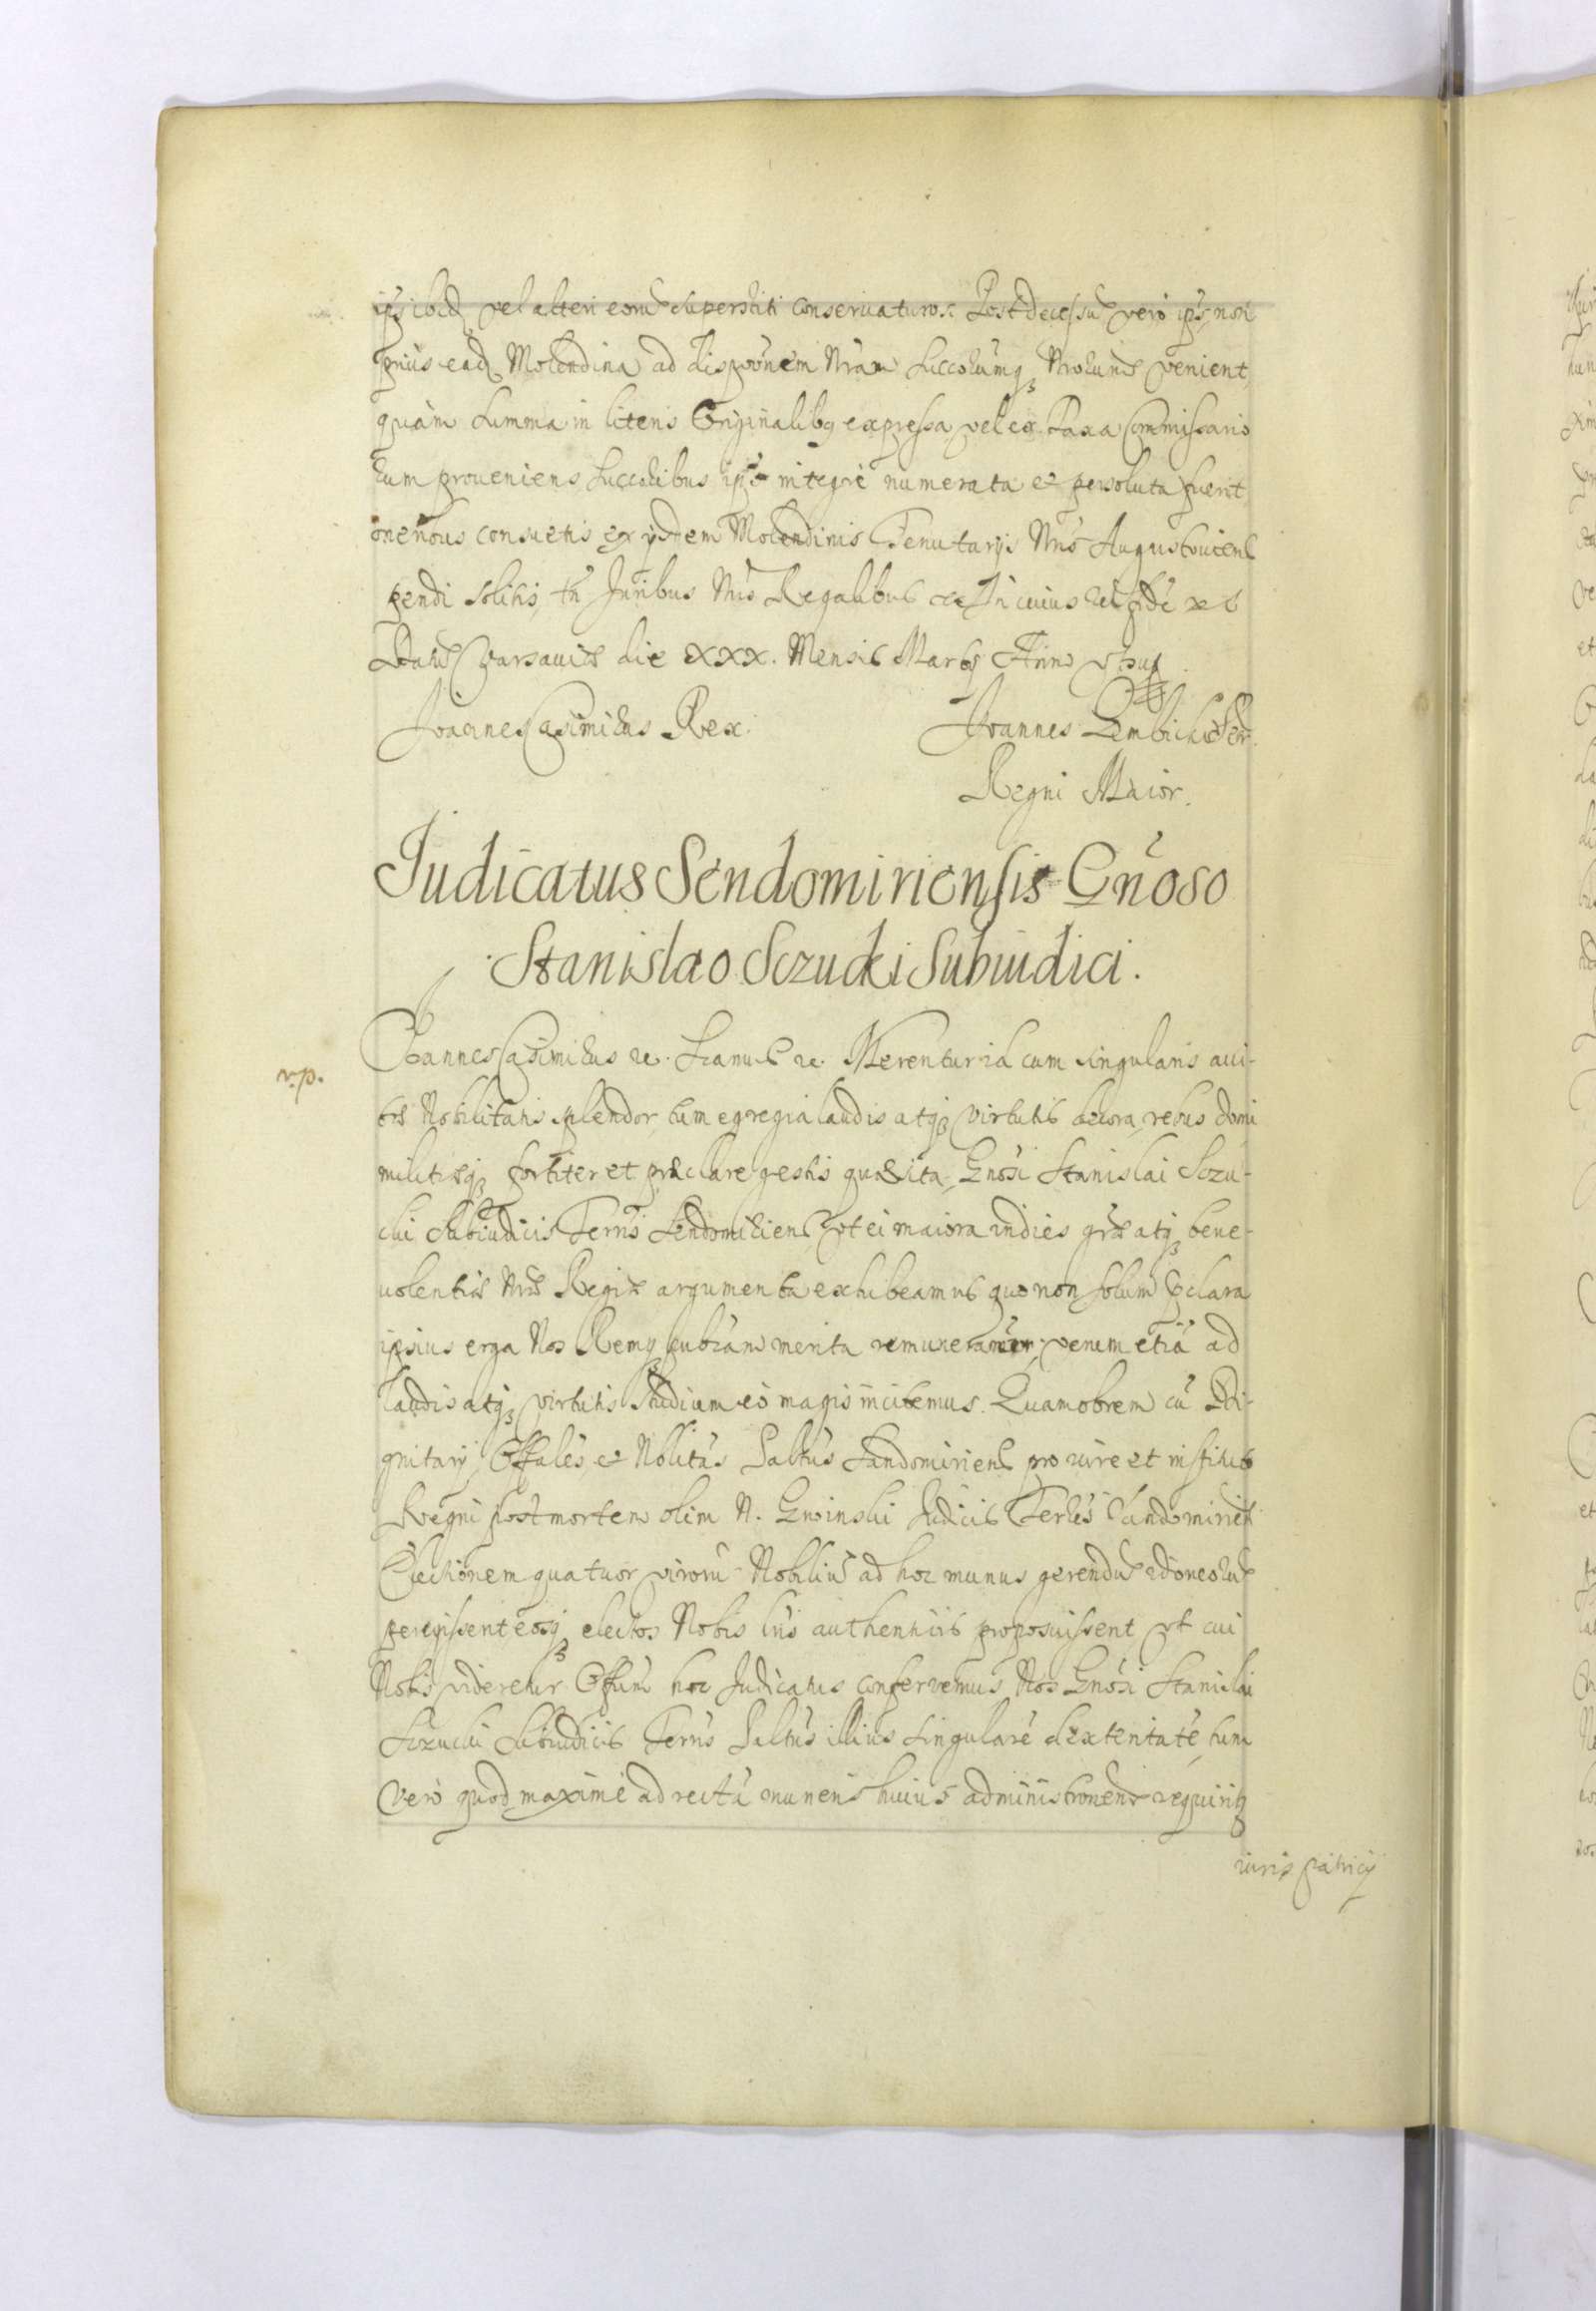 vel alteri eorũ superstiti conservaturos. Post decessũ vero ips. non
prius ead. Molendina ad dispõnem Nrãm Succorumq; Nrorum venient,
quàm summa in literis Originalibq expressa, vel ex taxa Commissario
rum proveniens Succoribus integrè numerata et persoluta fuerit
oneribus consuetis ex ijsdem Molendinis Tenutarijs Nris Augustovien
pendi solitis, tñ Juribus Nris Regalibus In cuius rei fidẽ
Datũ Varsaviæ die XXX. Mensis Martij Anno
Joannes Casimirus Rex. Joannes Lembicki Secr.
Regni Maior.
Judicatus Sendomiriensis Gñoso
Stanislao Sczucki Subiudici.
v.p.
Joannes Casimirus &c. Merentur id cum singularis avi-
tæ Nobilitatis splendor, tum egregia laudis atq; virtutis decora, rebus domi
militiæq; fortiter et præclare gestis quæsita, Gñosi Stanislai Sczu-
cki Subiudicis Terris Sendomiriens. vt ei maiora indies græ atq; bene-
volentiæ Nræ Regiæ argumenta exhibeamus quo non solum pclara
ipsius erga Nos Remq; publicam merita remuneramur, verum etiã ad
laudis atq; virtutis studium eò magis incitemus. Quamobrem cũ Di-
gnitarij, Offales et Nobilitas Paltus Sandomiriens pro iure et instituto
Regni post mortem olim N. Judicis Terris Sandomirien
Electionem quatuor virorũ Nobiliũ ad hoc munus gerendũ idoneorũ
peregissent eosq; electos Nobis lris authenticis proposuissent vt cui
Nobis videretur Offium hoc Judicatus conferremus Nos Gñosi Stanislai
Sczucki Subiudicis Terris Paltus illius singularẽ dexteritatẽ, tum
Vero quod maxime ad rectã muneris huius administronem requiritq
iuris patrij